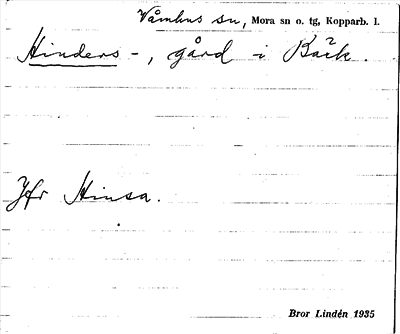 Våmhus sn, Mora sn o. tg, Kopparb. l.
Hinders -, gård i Bäck.
Jfr Hinsa.
Bror Lindén 1935